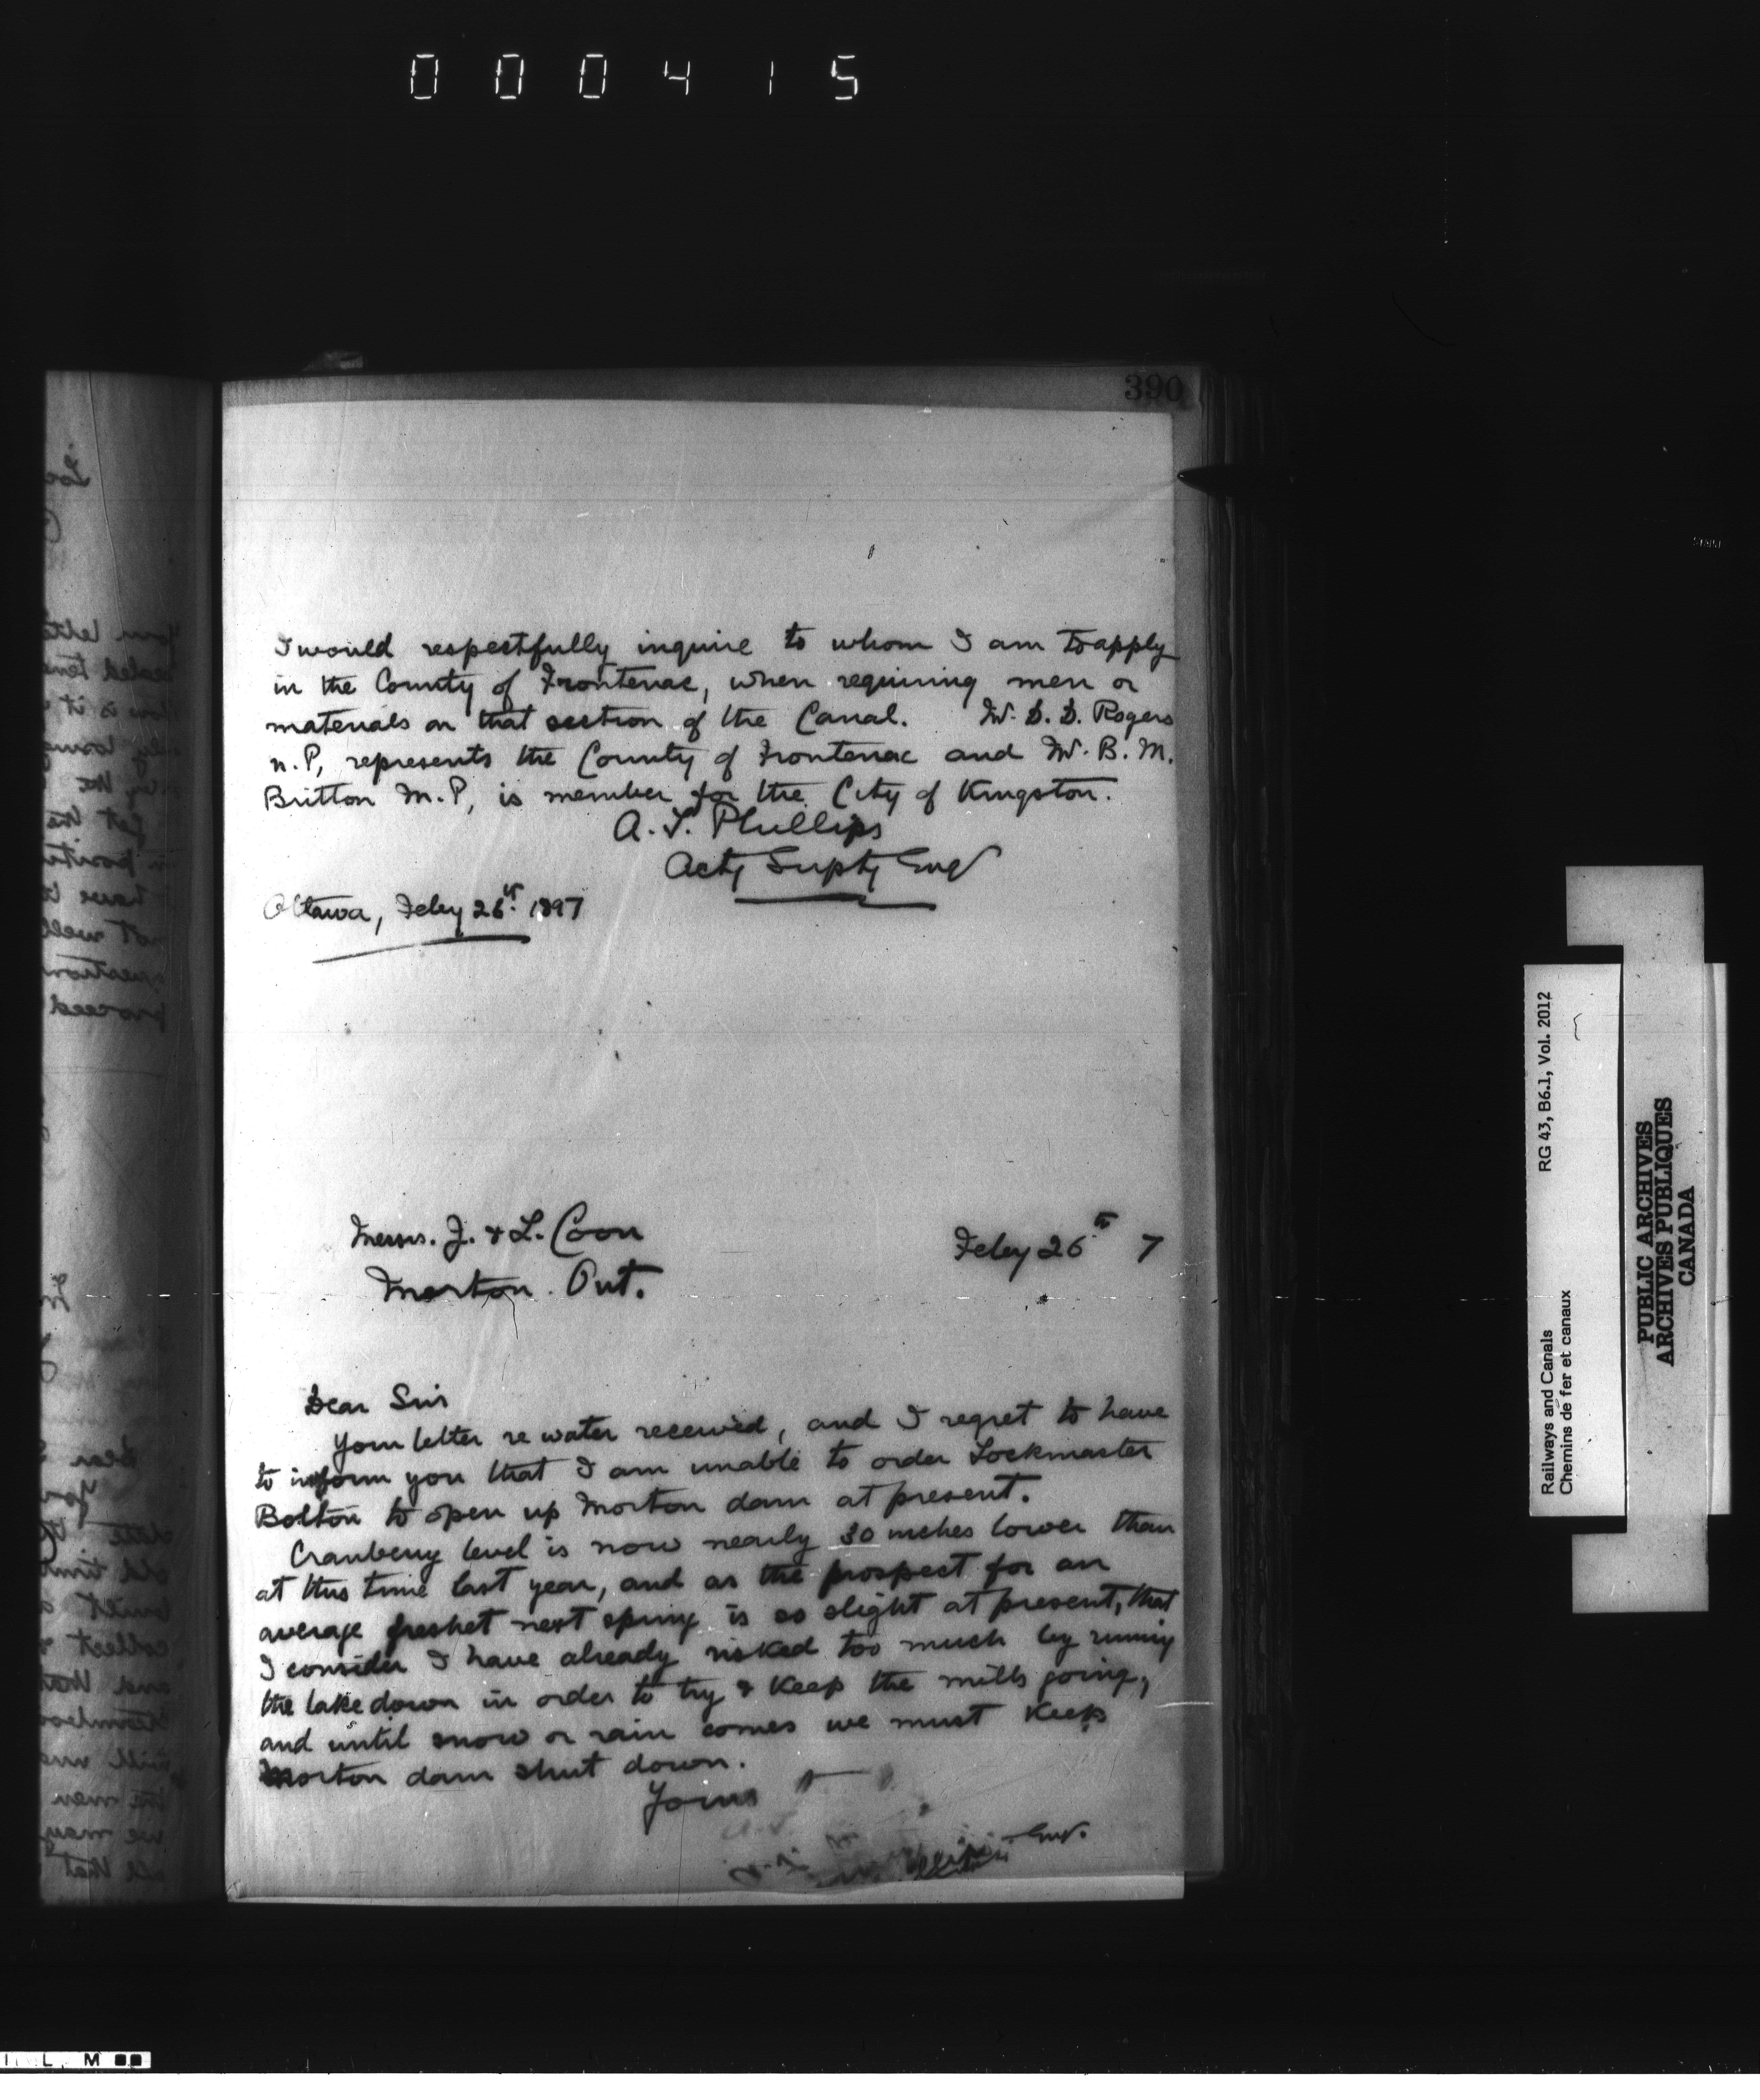 000415
390
I would respectfully inquire to whom I am to apply
in the County of Frontenac, when requiring men or
materials on that section of the Canal. Mr. D. D. Rogers
M.P, represents the County of Frontenac and Mr. B. M.
Britton M.P, is member for the City of Kingston.
A. T. Phillips
Actg Suptg Eng
Ottawa, Feby 26th. 1897
Messrs. J. & L. Coon
Feby 26th 7
Morton. Ont.
Dear Sirs
Your letter re water received, and I regret to have
to inform you that I am unable to order Lockmaster
Bolton to open up Morton dam at present.
Cranberry level is now nearly 30 inches lower than
at this time last year, and as the prospect for an
average freshet next spring is so slight at present, that
I consider I have already risked too much by running
the lake down in order to try & keep the mills going,
and until snow or rain comes we must keep
Morton dam shut down.
Yours
Eng.
RG 43, B6.1, Vol. 2012
Railways and Canals
Chemins de fer et canaux
PUBLIC ARCHIVES
ARCHIVES PUBLIQUES
CANADA